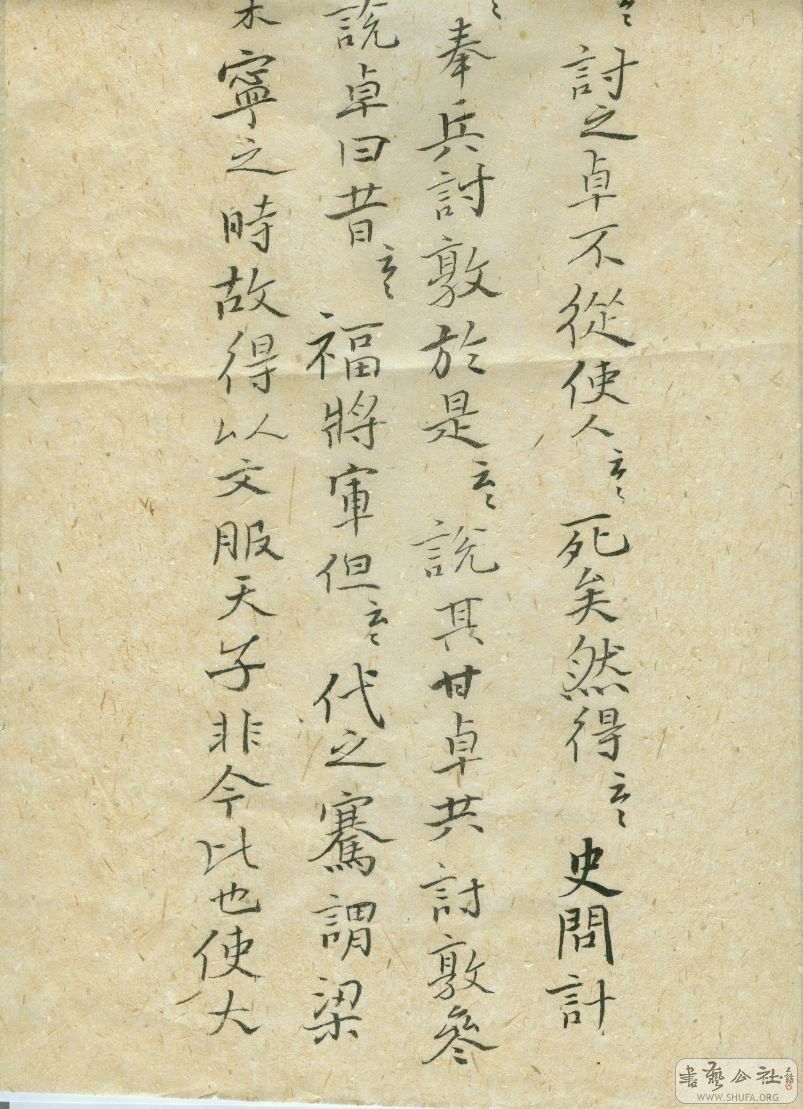 討之卓不從使人云々死矣然得云々史問計
奉兵討敦於是云々說其甘卓共討敦參
說卓曰昔云々福將軍但云々代之騫謂梁
寧之時故得以文服天子非今比也使大
書藝公社
WWW.SHUFA.ORG